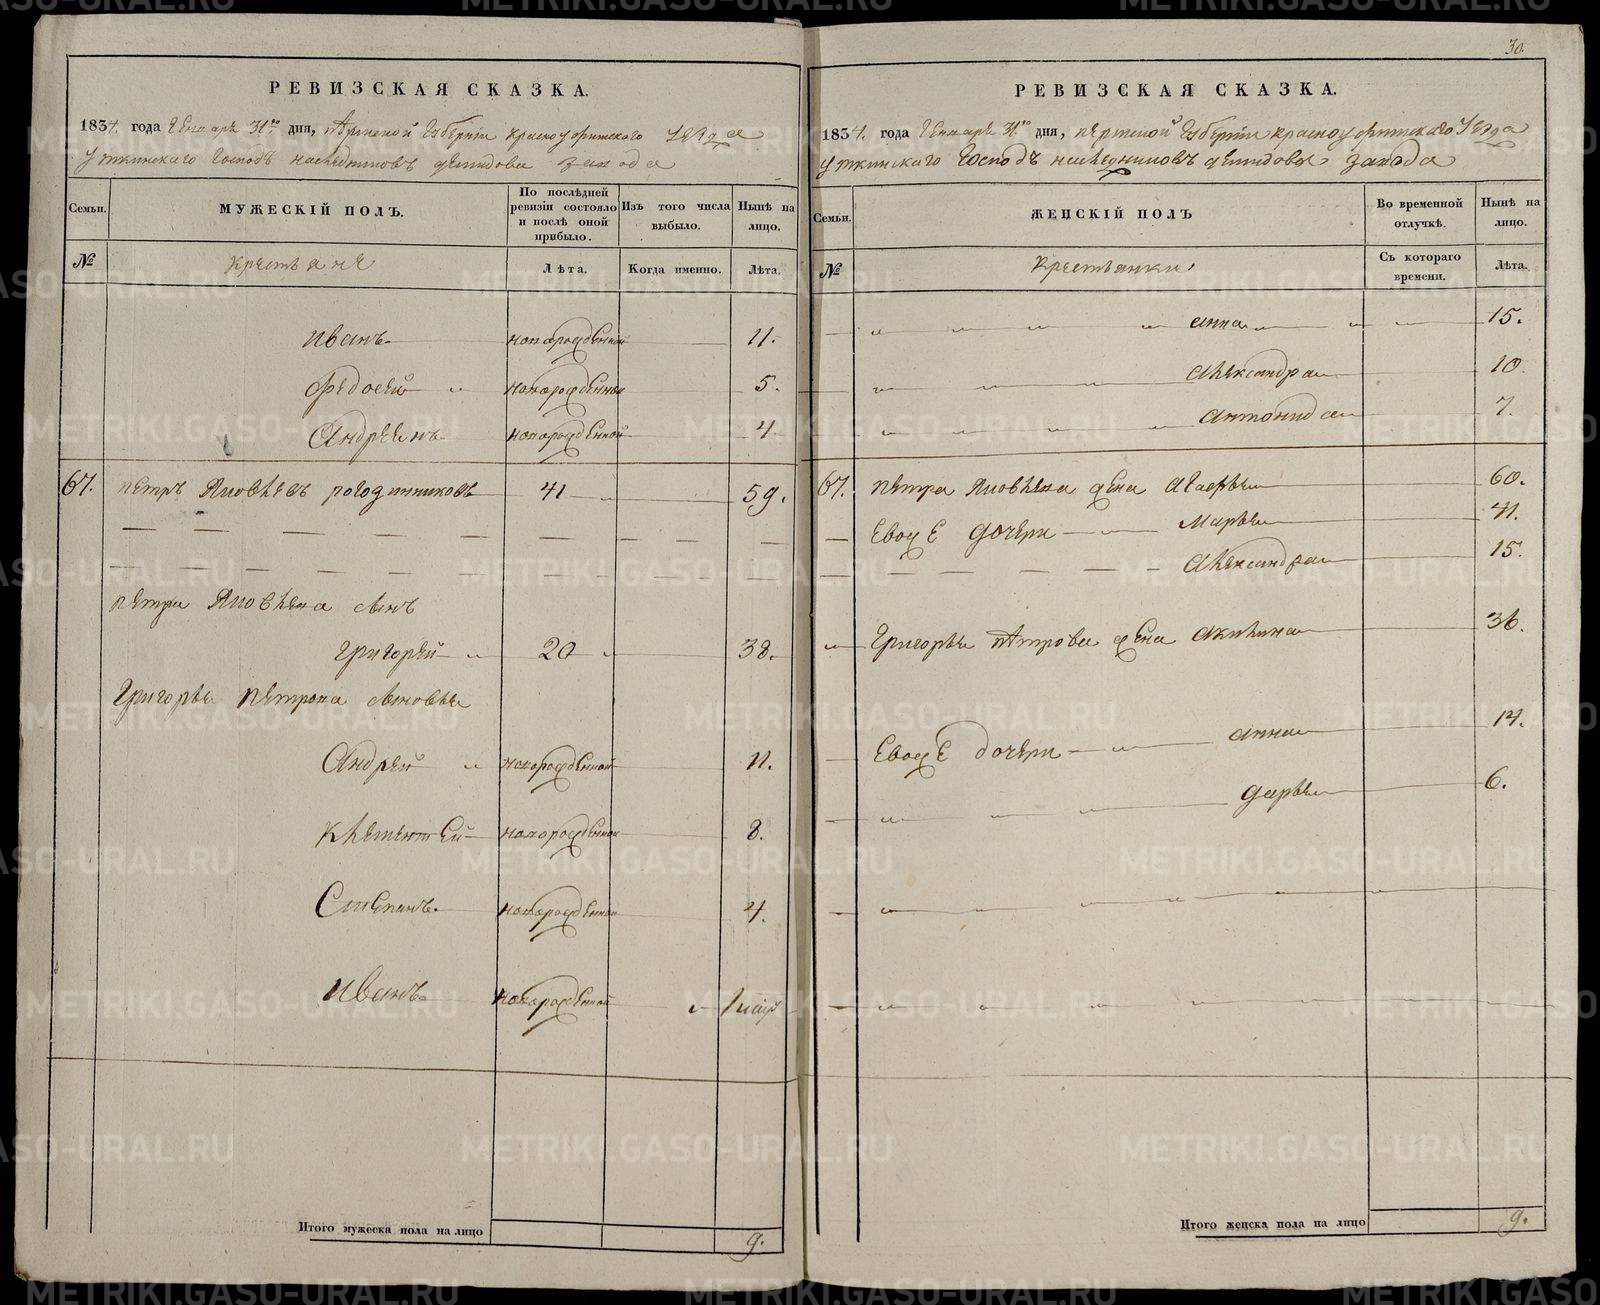 30.
РЕВИЗСКАЯ СКАЗКА.
1834. года Генваря 31го дня, пермской губернии красноуфимского уезда
уткинскаго Господъ наследниковъ демидова завода
Семьи.
МУЖЕСКІЙ ПОЛЪ.
По послѣдней ревизіи состояло и послѣ оной прибыло.
Изъ того числа выбыло.
Нынѣ на лицо.
№
крестьяне
Лѣта.
Когда именно.
Лѣта.
иванъ новорожденной 11.
федосей новорожденной 5.
Андреянъ новорожденной 4.
67. петръ Яковлевъ рогодниковъ 41 59.
петра Яковлева сынъ
григорей 20 38.
Григорья петрова сыновья
Андрей новорожденной 11.
клементей новорожденной 8.
Степанъ новорожденной 4.
иванъ новорожденной
Итого мужеска пола на лицо 9.
РЕВИЗСКАЯ СКАЗКА.
1834. года Генваря 31го дня, пермской губернии красноуфимскаго уезда
уткинскаго Господъ наследниковъ демидовых завода
Семьи.
ЖЕНСКІЙ ПОЛЪ
Во временной отлучкѣ.
Нынѣ на лицо.
№
крестьянки
Съ котораго времени.
Лѣта.
анна 15.
александра 10.
антонида 7.
67. петра Яковлева жена 60.
Евоже дочери марья 41.
александра 15.
Григорья петрова жена акилина 36.
Евоже дочери анна 14.
дарья 6.
Итого женска пола на лицо 9.
METRIKI.GASO-URAL.RU